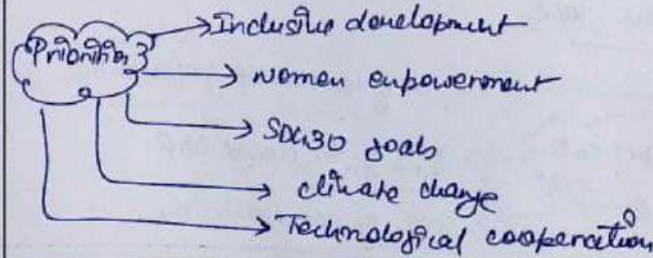 Priorities
Inclusive development
women empowerment
SDG30 goals
climate change
Technological cooperation